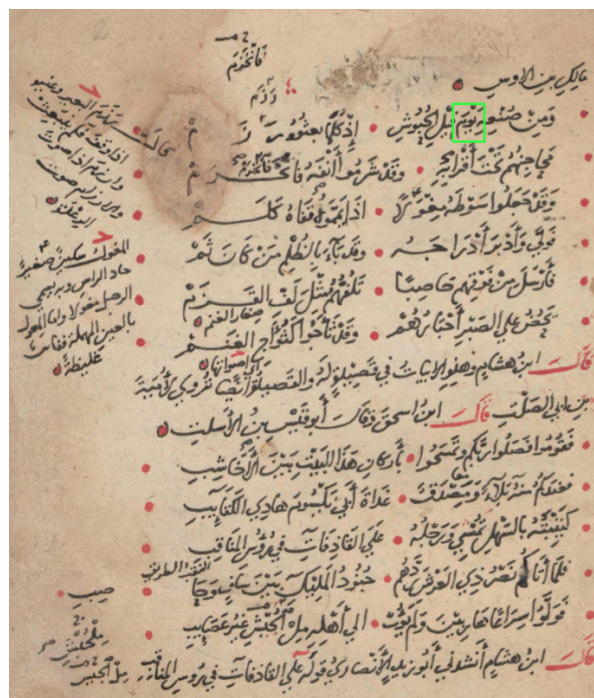 مالك بن الاوس
وَمِنْ صُنْعِهِ يَوْمَ فِيلِ الحُبُوشِ • إِذْ كُلَّمَا بَعَثُوهُ رَزَمْ
مَحَاجِنُهُمْ تَحْتَ أَقْرَابِهِ • وَقَدْ شَرَمُوا أَنْفَهُ فَانْخَرَمْ
وَقَدْ جَعَلُوا سَوْطَهُ مِغْوَلًا • اذا يَمَّمُوهُ قَفَاهُ كُلِمْ
فَوَلَّى وَأَدْبَرَ أَدْرَاجَهُ • وَقَدْ بَاءَ بِالظُّلْمِ مَنْ كَانَ ثَمْ
فَأَرْسَلَ مِنْ فَوْقِهِمْ حَاصِبًا • تَلُفُّهُمْ مِثْلَ لَفِّ القُزُمْ
صغار الغنم
تَحُضُّ عَلَى الصَّبْرِ أَحْبَارُهُمْ • وَقَدْ ثَأَجُوا كَثُؤَاجِ الغَنَمْ
اي اصواتها
قَالَ ابن هشام وهذه الابيات في قصيدة له والقصيدة ايضا تروى لأمية
بن ابي الصلت قَالَ ابن اسحق وقال أبو قيس بن الأسلت
فَقُومُوا فَصَلُّوا رَبَّكُمْ وَتَمَسَّحُوا • بأركان هذا البَيْتِ بَيْنَ الأَخَاشِبِ
فعندكم منه بلاء ومصدق • غداة أبي يكسوم هادي الكتايب
كَتِيبَتُهُ بالسَّهْلِ تَمْشِي وَرَجْلُهُ • على القاذفات في رؤس المناقب
النقب الطريق
فلما أتاكم نصر ذي العرش ردهم • جنود المليك بين ساف وحا
صب
فَوَلَّوْا سِرَاعًا هاربين ولم يؤب • الى أهله مِلْحُبْشِ غير عصايب
قَالَ ابن هشام أنشدني أبو زيد الأنصاري قوله على القاذفات في روس المناقب
فانخزم
رزم
المغول سكين صغير
حاد الراس